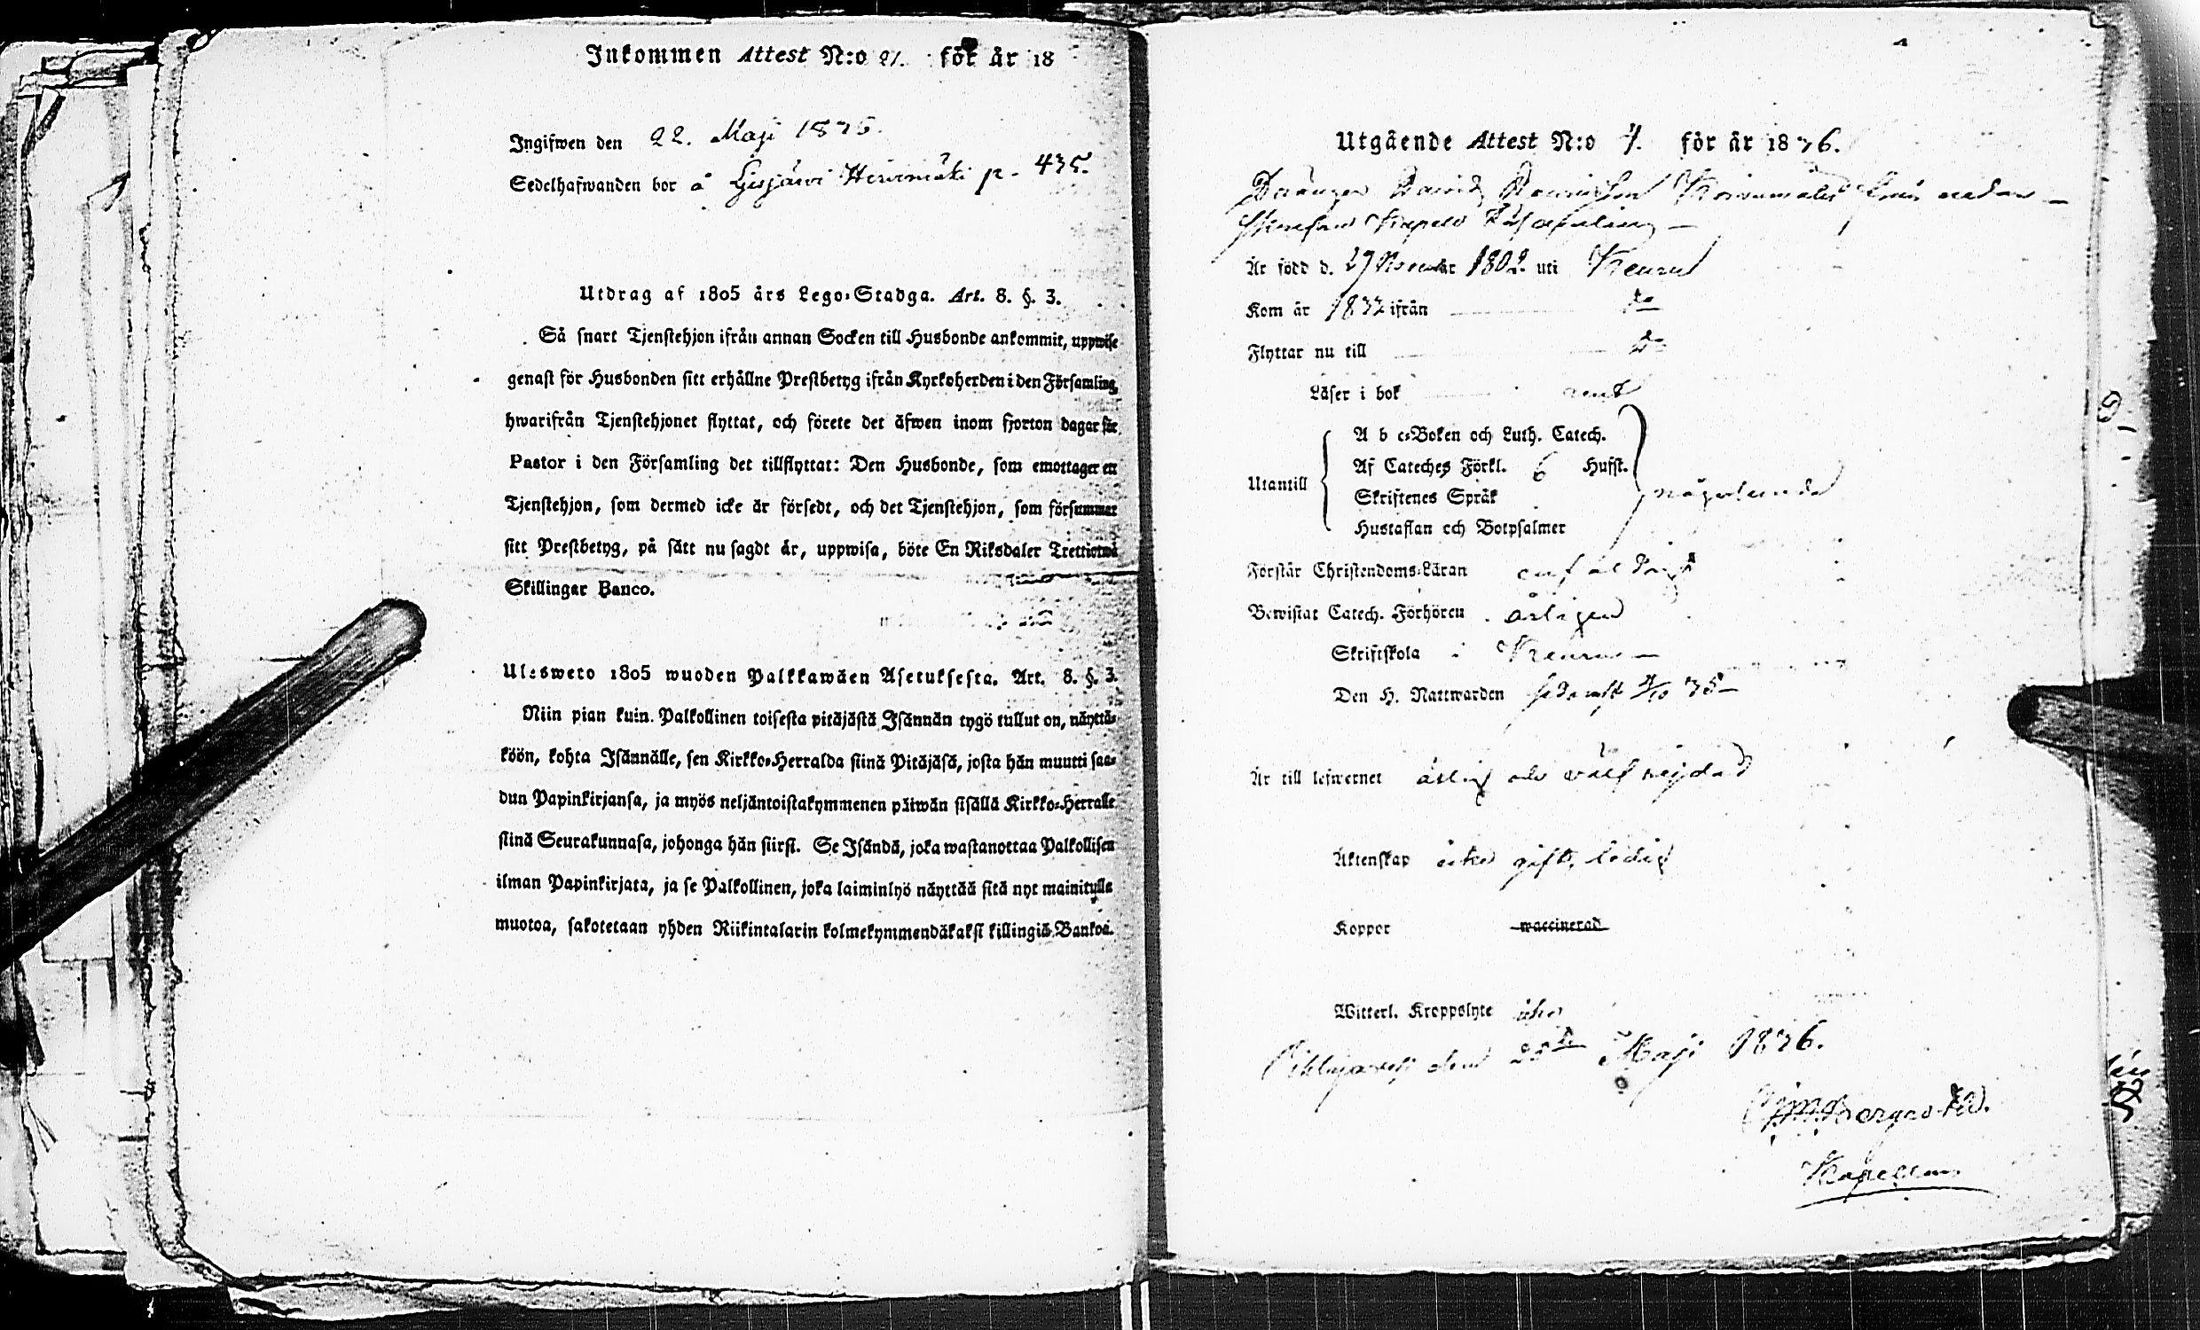 Inkommen Attest N:o 21. för år 18
Ingifwen den 22. Maji 1836.
Sedelhafwanden bor å Hirvimäki p. 435.
Utdrag af 1805 års Lego-Stadga. Art. 8. §. 3.
Så snart Tjenstehjon ifrån annan Socken till Husbonde ankommit, uppwise
genast för Husbonden sitt erhållne Prestbetyg ifrån Kyrkoherden i den Församling,
hwarifrån Tjenstehjonet flyttat, och förete det äfwen inom fjorton dagar för
Pastor i den Församling det tillflyttat: Den Husbonde, som emottager ett
Tjenstehjon, som dermed icke är försedt, och det Tjenstehjon, som försummar
sitt Prestbetyg, på sätt nu sagdt är, uppwisa, böte En Riksdaler Trettiotwå
Skillingar Banco.
Ulosweto 1805 wuoden Palkkawäen Asetuksesta. Art. 8. §. 3.
Niin pian kuin Palkollinen toisesta pitäjästä Isännän tygö tullut on, näyttä-
köön, kohta Isännälle, sen Kirkko-Herralda siinä Pitäjäsä, josta hän muutti saa-
dun Papinkirjansa, ja myös neljäntoistakymmenen päiwän sisällä Kirkko-Herralle
siinä Seurakunnasa, johonga hän siirsi. Se Isändä, joka wastanottaa Palkollisen
ilman Papinkirjata, ja se Palkollinen, joka laiminlyö näyttää sitä nyt mainitulla
muotoa, sakotetaan yhden Riikintalarin kolmekymmendäkaksi killingiä Bankoa.
Utgående Attest N:o 4. för år 1836.
Drängen David Henriksson från nedan-
skrefne Kapell Församling
Är född d. 29 November 1802 uti Keuru
Kom år 1832 ifrån do
Flyttar nu till do
Läser i bok rent
Utantill
A b c-Boken och Luth. Catech.
Af Cateches Förkl. 6 Hufst.
Skriftenes Språk
Hustaflan och Botpsalmer
någorlunda
Förstår Christendoms-Läran enfaldigt
Bewistat Catech. Förhören årligen
Skriftskola i Keuru
Den H. Nattwarden sednast
Är till lefwernet ärlig och välfrejdad
Äktenskap icke gift, ledig
Koppor waccinerad
Witterl. Kroppslyte icke
Pihlajavesi den 20de Maji 1836.
Kapellan